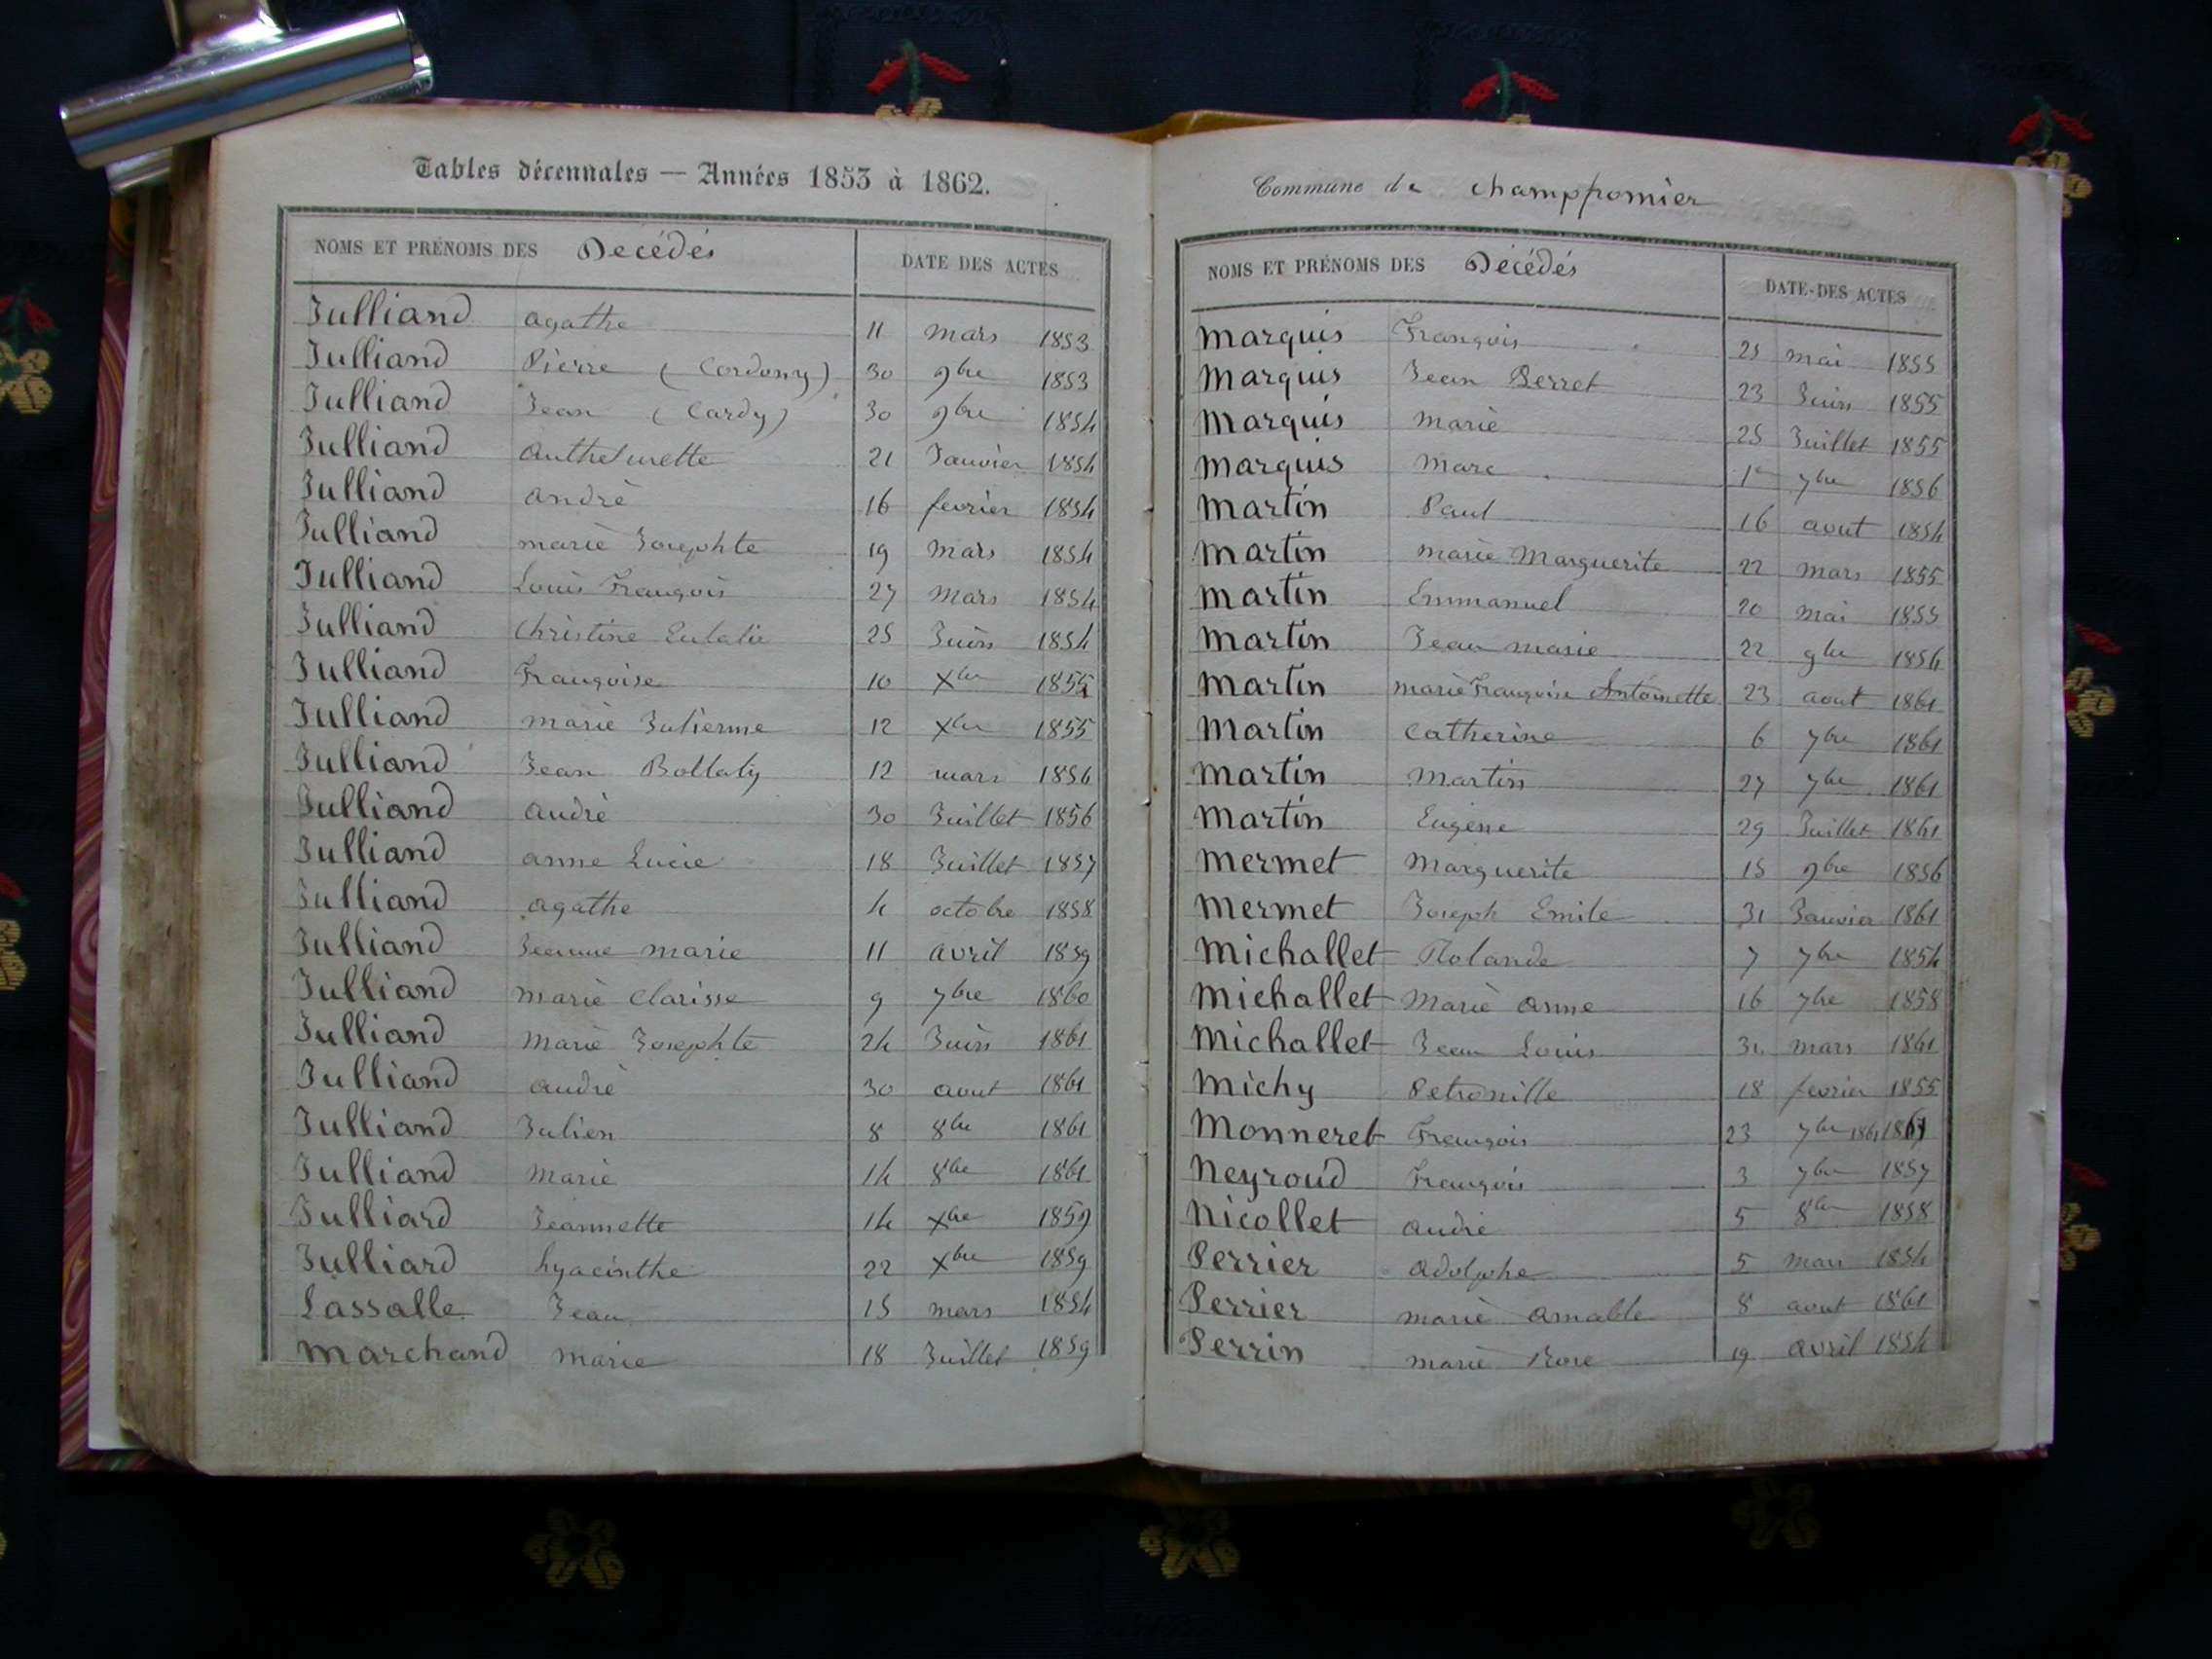 Tables décennales — Années 1853 à 1862.
NOMS ET PRÉNOMS DES Décédés DATE DES ACTES
Julliand agathe 11 mars 1853
Julliand Pierre (Cordony) 30 9bre 1853
Julliand Jean (Cardy) 30 9bre 1854
Julliand Anthelmette 21 Janvier 1854
Julliand andrè 16 fevrier 1854
Julliand mariè Josephte 19 mars 1854
Julliand Louis François 27 mars 1854
Julliand Christine Eulalie 25 Juin 1854
Julliand Françoise 10 Xbre 1855
Julliand mariè Julienne 12 Xbre 1855
Julliand Jean Bollaty 12 mars 1856
Julliand andrè 30 Juillet 1856
Julliand anne Lucie 18 Juillet 1857
Julliand agathe 4 octobre 1858
Julliand Jeanne marie 11 avril 1859
Julliand mariè Clarisse 9 7bre 1860
Julliand mariè Josephte 24 Juin 1861
Julliand andrè 30 aout 1861
Julliand Julien 8 8bre 1861
Julliand mariè 14 8bre 1861
Julliard Jeannette 14 Xbre 1859
Julliard hyacinthe 22 Xbre 1859
Lassalle Jean 15 mars 1854
Marchand marie 18 Juillet 1859
Commune de champfromier
NOMS ET PRÉNOMS DES Décédés DATE DES ACTES
Marquis François 25 mai 1855
Marquis Jean Perret 23 Juin 1855
Marquis mariè 25 Juillet 1855
Marquis marc 1er 7bre 1856
Martin Paul 16 aout 1854
Martin mariè Marguerite 22 mars 1855
Martin Emmanuel 20 mai 1855
Martin Jean marie 22 9bre 1856
Martin mariè Françoise Antoinette 23 aout 1861
Martin Catherine 6 7bre 1861
Martin martin 27 7bre 1861
Martin Eugène 29 Juillet 1861
Mermet Marguerite 15 9bre 1856
Mermet Joseph Emile 31 Janvier 1861
Michallet Rolande 7 7bre 1854
Michallet Mariè anne 16 7bre 1858
Michallet Jean Louis 31 mars 1861
Michy Petronille 18 fevrier 1855
Monneret François 23 7bre 1861 1861
Neyroud François 3 7bre 1857
Nicollet andrè 5 8bre 1858
Perrier adolphe 5 mars 1854
Perrier mariè amable 8 aout 1861
Perrin mariè Rose 19 avril 1854